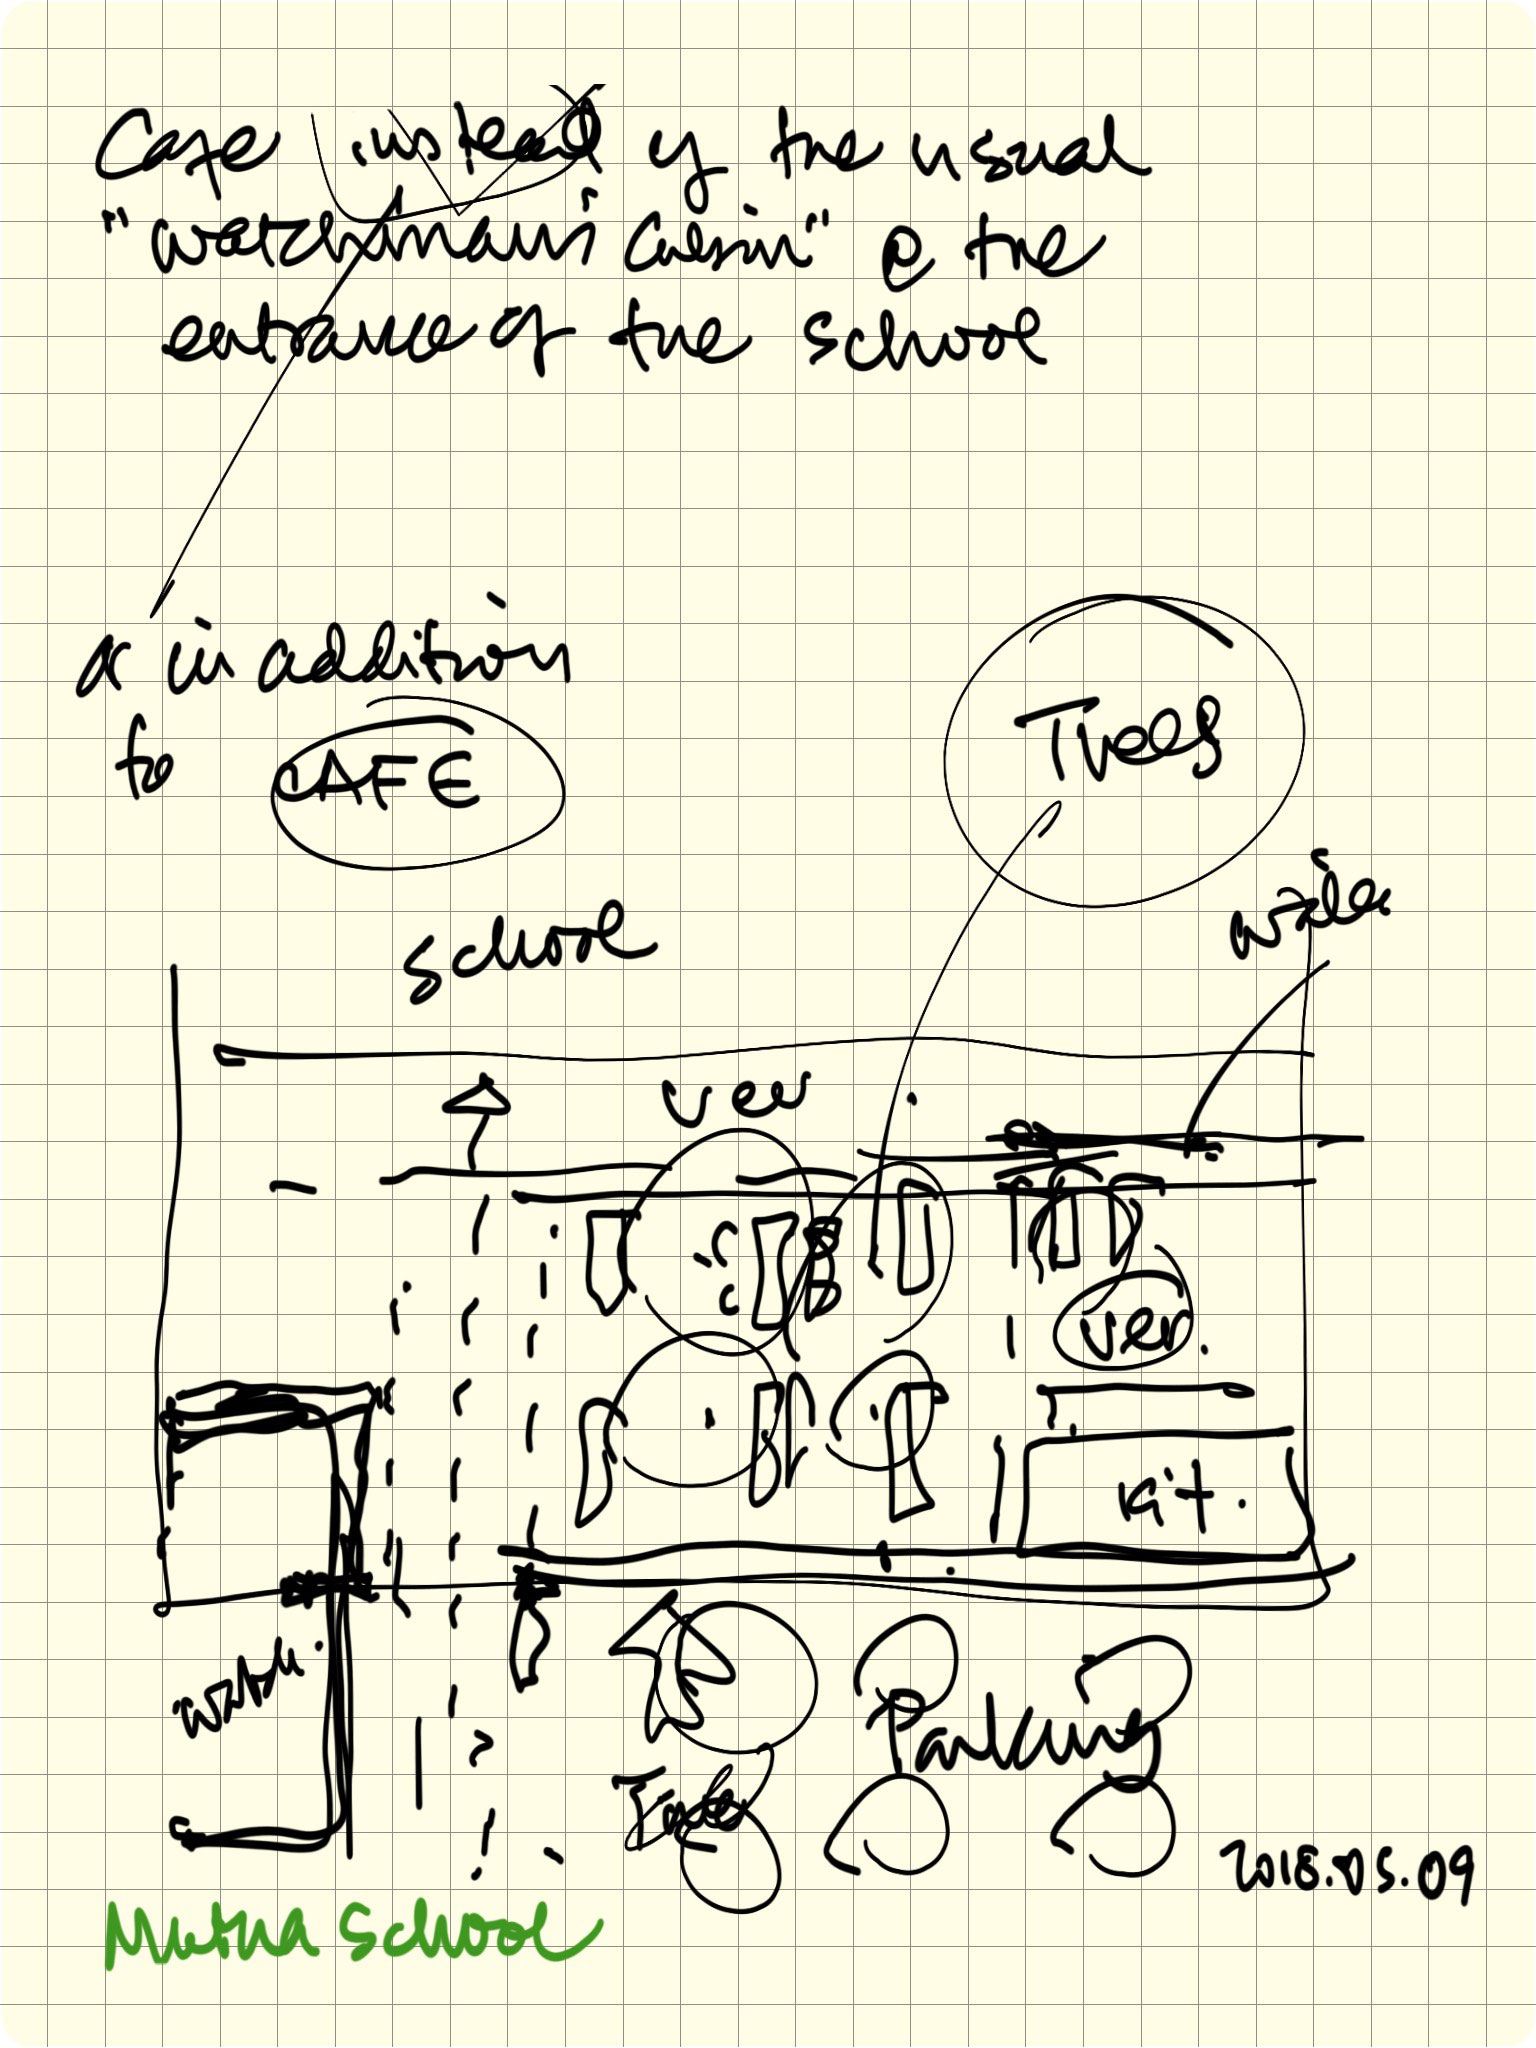 Cafe instead of the usual
"watchman's cabin" @ the
entrance of the school
or in addition
to CAFE
Trees
school
ver
ver.
Kit.
watch.
Parking
2018.05.09
School